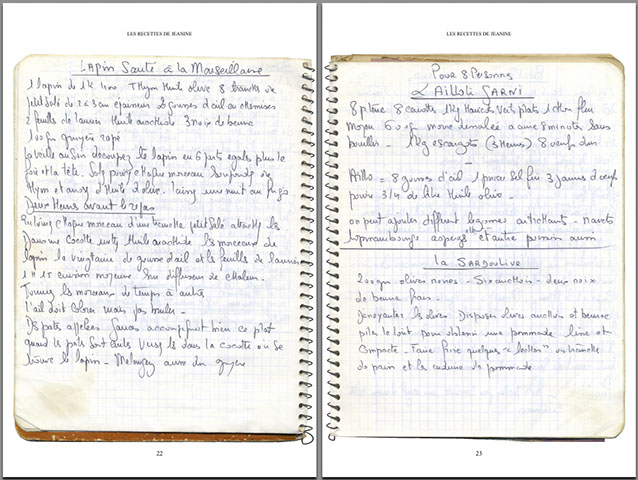 LES RECETTES DE JEANINE
Lapin Sauté à la Marseillaise
1 lapin de 1k Thym Huile olive 8 tranches de
petit Salé de 2 à 3 cm épaisseur 20 gousses d'ail en chemises
2 feuilles de laurier Huile arachide 3 noix de beurre
100 gr gruyère rapé
la veille au soir découpez le lapin en 6 parts egales plus le
foie et la tête. Salez poivrez chaque morceau Saupoudrez de
Thym et arrosez d'Huile d'olive. laissez une nuit au frigo
Deux Heures avant le repas
Entourez chaque morceau d'une tranche petit Salé attachez les
Dans une cocotte mettez Huile arachide les morceaux de
lapin la vingtaine de gousses d'ail et les feuilles de laurier
1 H 15 environ moyenne Sur diffuseur de chaleur.
Tournez les morceaux de temps à autre
l'ail doit colorer mais pas bruler.
Des pates accompagnent bien ce plat
quand les pates sont cuites Versez les dans la cocotte où se
trouve le lapin - Melangez avec du gruyère
22
LES RECETTES DE JEANINE
Pour 8 Personnes
L'Aïlloli GARNI
8 p de terre 8 carottes 1 kg Haricots Verts plats 1 chou fleur
moyen 600 gr morue dessalée a cuire 8 minutes Sans
bouillir - 1 kg escargots (3 Heures) 8 oeufs durs
Aïllo = 8 gousses d'ail 1 pincée Sel fin 3 jaunes d'oeufs
poivre 3/4 de litre Huile olive -
on peut ajouter different legumes artichauts - navets
topinambourgs asperges et autre poisson aussi
la SARDOULIVE
200 gr olives noires - Six anchois - deux noix
de beurre frais -
Denoyautez les olives Disposez olives anchois et beurre
pilez le tout pour obtenir une pommade fine et
compacte - Faire frire quelques ou tranches
de pain et les enduire de pommade
23